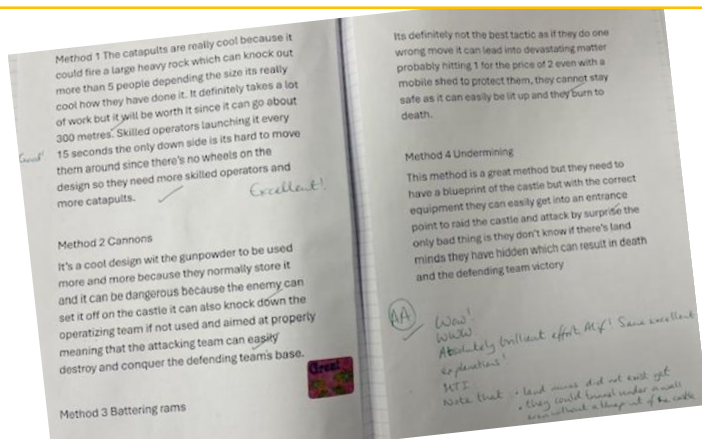 Method 1 The catapults are really cool because it
could fire a large heavy rock which can knock out
more than 5 people depending the size its really
cool how they have done it. It definitely takes a lot
of work but it will be worth It since it can go about
300 metres. Skilled operators launching it every
Good!
15 seconds the only down side is its hard to move
them around since there's no wheels on the
design so they need more skilled operators and
more catapults.
Excellent!
Method 2 Cannons
It's a cool design wit the gunpowder to be used
more and more because they normally store it
and it can be dangerous because the enemy can
set it off on the castle it can also knock down the
operatizing team if not used and aimed at properly
meaning that the attacking team can easily
destroy and conquer the defending team's base.
Great
Method 3 Battering rams
Its definitely not the best tactic as if they do one
wrong move it can lead into devastating matter
probably hitting 1 for the price of 2 even with a
mobile shed to protect them, they cannot stay
safe as it can easily be lit up and they burn to
death.
Method 4 Undermining
This method is a great method but they need to
have a blueprint of the castle but with the correct
equipment they can easily get into an entrance
point to raid the castle and attack by surprise the
only bad thing is they don't know if there's land
minds they have hidden which can result in death
and the defending team victory
AA
Wow!
WWW
Absolutely brilliant effort Alif! Some excellent
explanations!
MTI
Note that • land mines did not exist yet
• they could tunnel under a wall
even without a blueprint of the castle